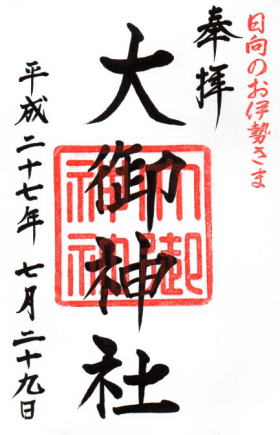 日向のお伊勢さま
奉拝
大御神社
平成二十七年 七月二十九日